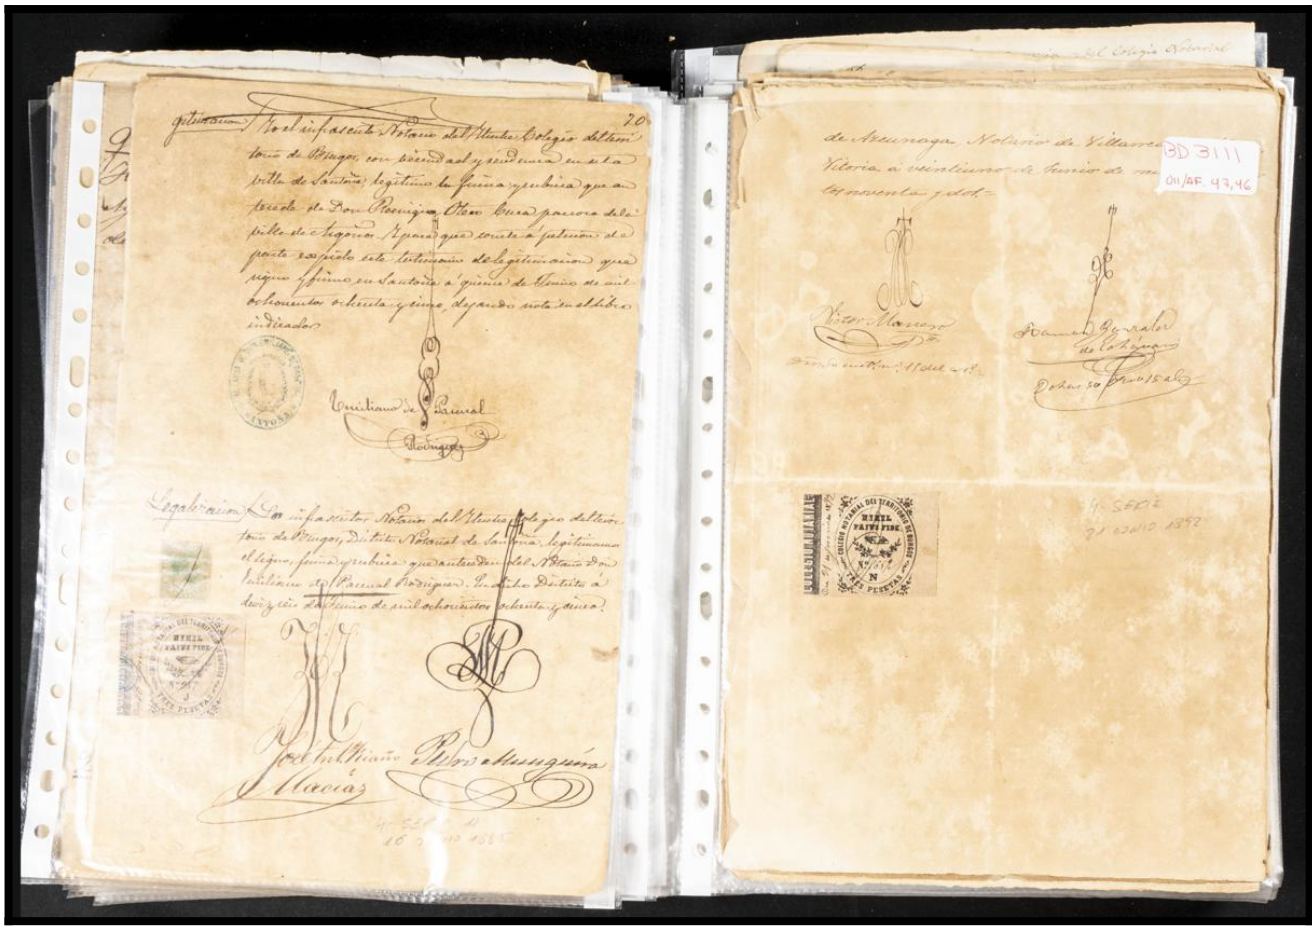 70
gitimacion / Yo el infrascrito Notario del Ilustre Colegio del terri
torio de Burgos, con vecindad y residencia en esta
villa de Santoña, legitimo la firma y rubrica que an
tecede de Don Remigio Otero Cura parroco de la
villa de Argoños. Y para que conste á peticion de
parte expido este testimonio de legitimacion que
signo y firmo en Santoña á quince de Junio de mil
ochocientos ochenta y cinco, dejando nota en el libro
indicador
SANTOÑA
Emiliano de Pascual
Rodriguez
Legalizacion / Los infrascritos Notarios del Ilustre Colegio del terri
torio de Burgos, Distrito Notarial de Santoña, legitimamos
el signo, firma y rubrica que anteceden del Notario Don
Emiliano de Pascual Rodriguez. En dicho Distrito á
diez y seis de Junio de mil ochocientos ochenta y cinco.
NOTARIAL DEL TERRITORIO DE BURGOS
NIHIL
PRIUS FIDE
TRES PESETAS
José Ant. Riaño
Macías
Pedro Munguira
4ª SERIE
16 JUNIO 1885
del Colegio Notarial
de Azcunaga, Notario de Villarreal
Vitoria á veintiuno de Junio de mil
tos noventa y dos.
BD 3111
011/AF. 47,46
Victor Manero
Ramon Gonzalez
de Echávarri
COLEGIO NOTARIAL DEL TERRITORIO DE BURGOS
NIHIL
PRIUS FIDE
N
TRES PESETAS
4ª SERIE
21 JUNIO 1892